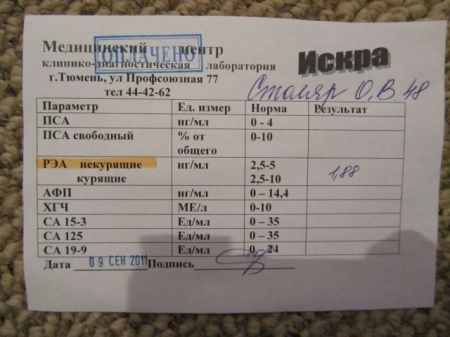 Медицинский центр
ОПЛАЧЕНО
Искра
клинико-диагностическая лаборатория
г.Тюмень, ул Профсоюзная 77
тел 44-42-62
Столяр О,В. 48
Параметр Ед. измер Норма Результат
ПСА нг/мл 0 - 4
ПСА свободный % от общего 0-10
РЭА некурящие нг/мл 2,5-5
курящие 2,5-10 1,88
АФП нг/мл 0 – 14,4
ХГЧ МЕ/л 0-10
СА 15-3 Ед/мл 0 – 35
СА 125 Ед/мл 0 – 35
СА 19-9 Ед/мл 0 – 24
Дата 09 СЕН 2011 Подпись